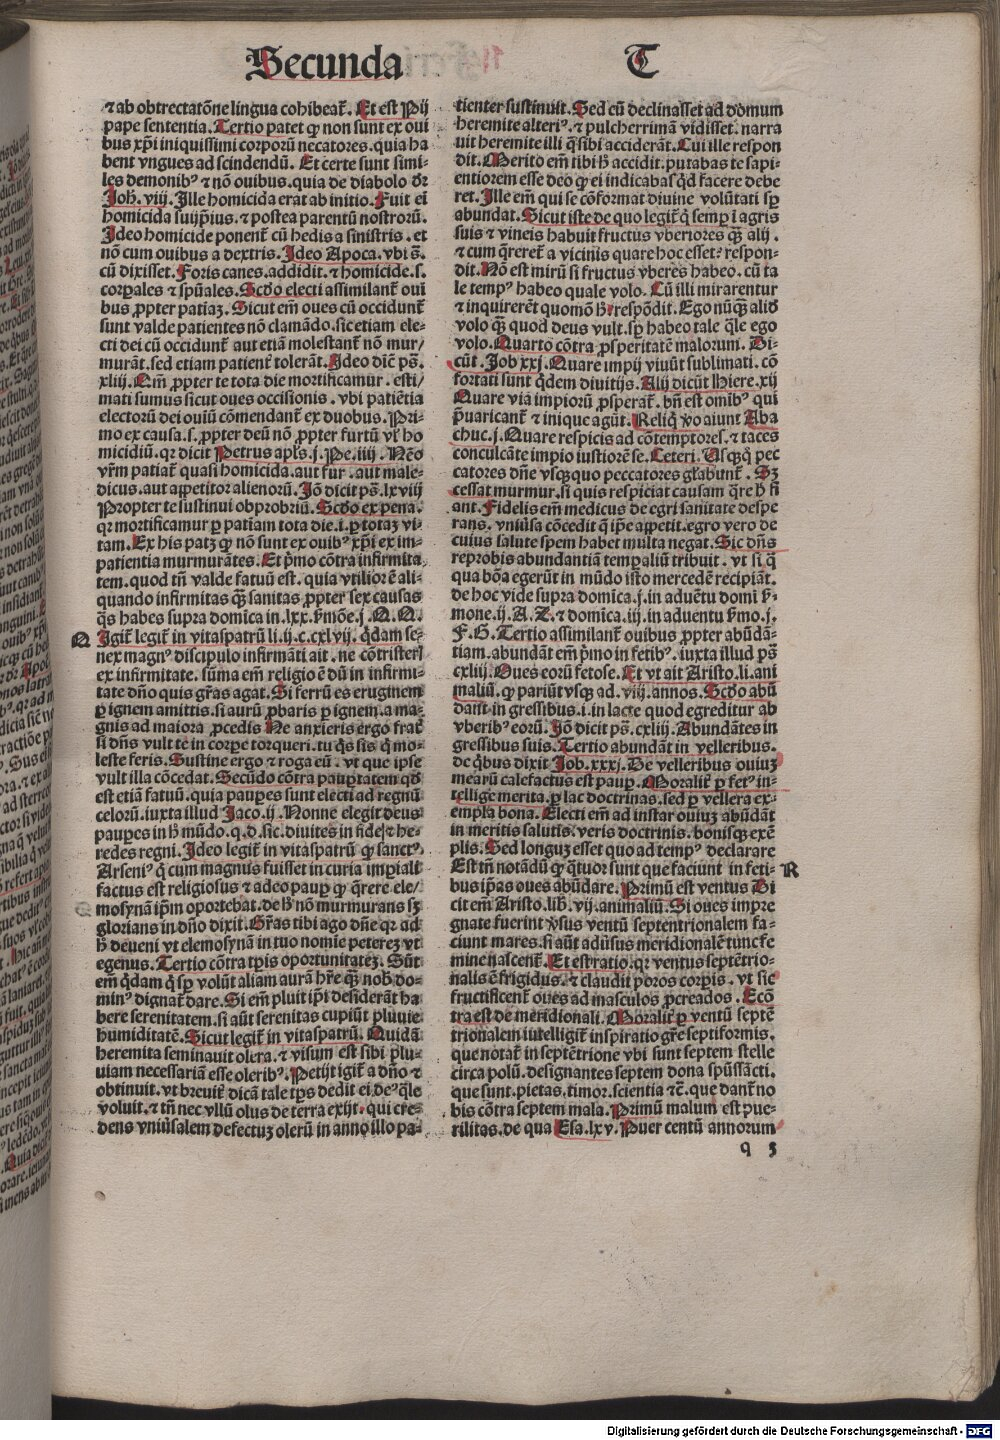 Secunda T
⁊ ab obtrectatōne lingua cohibeat᷑. Et est Pij
pape sententia. Tertio patet ꝙ non sunt ex oui
bus xp̄i iniquissimi corporū necatores. quia ha
bent vngues ad scindendū. Et certe sunt simi-
les demonibꝰ ⁊ nō ouibus. quia de diabolo dr̄
Joh̄. viij. Jlle homicida erat ab initio. Fuit eī
homicida suijp̄ius. ⁊ postea parentū nostrorū.
Jdeo homicide ponent᷑ cū hedis a sinistris. et
nō cum ouibus a dextris. Jdeo Apoca. vbi s̄.
cū dixisset. Foris canes. addidit. ⁊ homicide. s.
corꝑales ⁊ spūales. Scd̄o electi assimilant᷑ oui
bus ꝓpter patiaꝫ. Sicut em̄ oues cū occidunt᷑
sunt valde patientes nō clamādo. sic etiam ele-
cti dei cū occidunt᷑ aut etiā molestant᷑ nō mur/
murāt. sed etiam patient᷑ tolerāt. Jdeo dīc ps̄.
xliij. Qm̄ ꝓpter te tota die mortificamur. esti/
mati sumus sicut oues occisionis. vbi patiētia
electorū dei ouiū cōmendant᷑ ex duobus. Pri-
mo ex causa. s. ꝓpter deū nō ꝓpter furtū vl̓ ho
micidiū. qr dicit Petrus apl̄s. j. Pe. iiij. Nēo
vr̄m patiat᷑ quasi homicida. aut fur. aut male-
dicus. aut appetitor alienorū. Jō dicit ps̄. lxviij
Propter te sustinui obprobriū. Scd̄o ex pena.
qr mortificamur ꝑ patiam tota die. i. ꝑ totaꝫ vi-
tam. Ex his patꝫ ꝙ nō sunt ex ouibꝰ xp̄i ex im-
patientia murmurātes. Et p̄mo cōtra infirmita
tem. quod tn̄ valde fatuū est. quia vtilior ē ali-
quando infirmitas qꝫ̄ sanitas ꝓpter sex causas
q̄s habes supra domīca in. lxx. ꝑmōe. j. N. O.
Q Jgit᷑ legit᷑ in vitaspatrū li. ij. c. cxlvij. qͥdam se-
nex magnꝰ discipulo infirmāti ait. ne cōtristeri
ex infirmitate. sūma em̄ religio ē dū in infirmi-
tate dn̄o quis gr̄as agat. Si ferrū es eruginem
ꝑ ignem amittis. si aurū ꝓbaris ꝑ ignem. a ma-
gnis ad maiora ꝓcedis Ne anxieris ergo frat᷑
si dn̄s vult te in corꝑe torqueri. tu qͥs sis qͥ mo-
leste feris. Sustine ergo ⁊ roga eū. vt que ipse
vult illa cōcedat. Secūdo cōtra paupertatem qd̄
est etiā fatuū. quia paupes sunt electi ad regnū
celorū. iuxta illud Jaco. ij. Nonne elegit deus
paupes in h̄ mūdo. q. d. sic. diuites in fide ⁊ he-
redes regni. Jdeo legit᷑ in vitaspatrū ꝙ sanctꝰ
Arseniꝰ qͥ cum magnus fuisset in curia imꝑiali
factus est religiosus ⁊ adeo paup ꝙ q̄rere ele/
mosynā ip̄m oportebat. de h̄ nō murmurans sꝫ
glorians in dn̄o dixit. Gr̄as tibi ago dn̄e qr ad
h̄ deueni vt elemosynā in tuo nomīe petereꝫ vt
egenus. Tertio cōtra tꝑis oportunitateꝫ. Sūt
em̄ qͥdam qͥ sꝑ volūt aliam aurā hr̄e qꝫ̄ nob̄ do-
minꝰ dignat᷑ dare. Si em̄ pluit ip̄i desiderāt ha
bere serenitatem. si aūt serenitas cupiūt pluuie
humiditatē. Sicut legit᷑ in vitaspatrū. Quidā
heremita seminauit olera. ⁊ visum est sibi plu-
uiam necessariā esse oleribꝰ. Petijt igit᷑ a dn̄o ⁊
obtinuit. vt breuit᷑ dicā tale tp̄s dedit ei deꝰ qle
voluit. ⁊ tn̄ nec vllū olus de terra exijt. qui cre-
dens vniūsalem defectuꝫ olerū in anno illo pa-
tienter sustinuit. Sed cū declinasset ad domum
heremite alteriꝰ. ⁊ pulcherrimā vidisset. narra
uit heremite illi qͣ sibi acciderāt. Cui ille respon
dit. Merito em̄ tibi h̄ accidit. putabas te sapi-
entiorem esse deo ꝙ ei indicabas qͥd facere debe
ret. Jlle em̄ qui se cōformat diuine volūtati sꝑ
abundat. Sicut iste de quo legit᷑ qͥ semꝑ ī agris
suis ⁊ vineis habuit fructus vberiores qꝫ̄ alij.
⁊ cum q̄reret᷑ a vicinis quare hoc esset: respon-
dit. Nō est mirū si fructus vberes habeo. cū ta
le tempꝰ habeo quale volo. Cū illi mirarentur
⁊ inquirerēt quomō h̄: respōdit. Ego nūqꝫ̄ aliд
volo qꝫ̄ quod deus vult. sꝑ habeo tale qle ego
volo. Quarto cōtra ꝓsperitatē malorum. Di-
cūt. Job xxj. Quare impij viuūt sublimati. cō
fortati sunt qͥdem diuitijs. Alij dicūt Hiere. xij
Quare via impiorū ꝓsperat᷑. bn̄ est omībꝰ qui
p̄uaricant᷑ ⁊ inique agūt. Reliqͥ v̓o aiunt Aba
chuc. j. Quare respicis ad cōtemptores. ⁊ taces
conculcāte impio iustiorē se. Ceteri. Vsqꝫqͦ pec
catores dn̄e vsqꝫquo peccatores gl̓abunt᷑. Sꝫ
cessat murmur. si quis respiciat causam q̄re h̄ fi
ant. Fidelis em̄ medicus de egri sanitate despe
rans. vniūsa cōcedit q̄ ip̄e appetit. egro vero de
cuius salute spem habet multa negat. Sic dn̄s
reprobis abundantiā temꝑaliū tribuit. vt si qͥ
qua bōa egerūt in mūdo isto mercedē recipiāt.
de hoc vide supra domīca. j. in aduētu domī ꝑ-
mone. ij. A. Z. ⁊ domīca. iij. in aduentu ꝑmo. j.
F. G. Tertio assimilant᷑ ouibus ꝓpter abūdā-
tiam. abundāt em̄ p̄mo in fetibꝰ. iuxta illud ps̄
cxliij. Oues eorū fetose. Et vt ait Aristo. li. ani
maliū. ꝙ pariūt vsqꝫ ad. viij. annos. Scd̄o abū
dant in gressibus. i. in lacte quod egreditur ab
vberibꝰ eorū. Jō dicit ps̄. cxliij. Abundātes in
gressibus suis. Tertio abundāt in velleribus.
de qͥbus dixit Job. xxxj. De velleribus ouiuꝫ
mearū calefactus est paup. Moralit᷑ ꝑ fetꝰ in-
tellige merita. ꝑ lac doctrinas. sed ꝑ vellera ex-
empla bona. Electi em̄ ad instar ouiuꝫ abūdāt
in meritis salutis. veris doctrinis. bonisqꝫ exē
plis. Sed longuꝫ esset quo ad tempꝰ declarare
Est tn̄ notādū ꝙ qͣtuor sunt que faciunt in feti- R
bus ip̄as oues abūdare. Primū est ventus Di
cit em̄ Aristo. lib̄. vij. animaliū. Si oues impre
gnate fuerint v̓sus ventū septentrionalem fa-
ciunt mares. si aūt adūsus meridionalē tunc fe
mine nascent᷑. Et est ratio. qr ventus septētrio-
nalis ē frigidus. ⁊ claudit poros corꝑis. vt sic
fructificent᷑ oues ad masculos ꝓcreados. Ecō
tra est de meridionali. Moralit᷑ ꝑ ventū septē
trionalem iutelligit᷑ inspiratio gr̄e septiformis.
que notat᷑ in septētrione vbi sunt septem stelle
circa polū. designantes septem dona spūssācti.
que sunt. pietas. timor. scientia ⁊c̄. que dant᷑ no
bis cōtra septem mala. Primū malum est pue-
rilitas. de qua Esa. lxv. Puer centū annorum
q 3
Digitalisierung gefördert durch die Deutsche Forschungsgemeinschaft - DFG